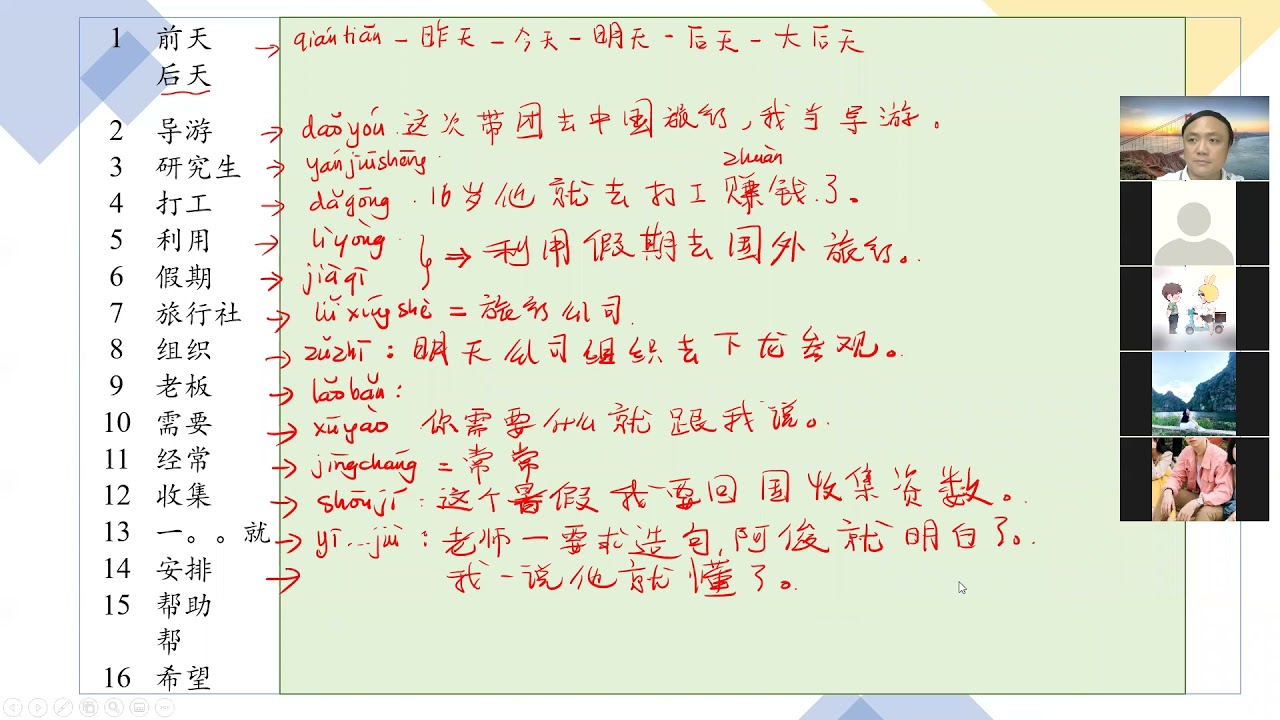 1 前天 → qiántiān - 昨天 - 今天 - 明天 - 后天 - 大后天
后天
2 导游 → dǎoyóu. 这次带团去中国旅行,我当导游。
3 研究生 → yánjiūshēng.
zhuàn
4 打工 → dǎgōng. 16岁他就去打工赚钱了。
5 利用 → lìyòng. } ⇒ 利用假期去国外旅行。
6 假期 → jiàqī
7 旅行社 → lǚxíngshè = 旅行公司
8 组织 → zǔzhī: 明天公司组织去下龙参观。
9 老板 → lǎobǎn:
10 需要 → xūyào 你需要什么就跟我说。
11 经常 → jīngcháng = 常常
12 收集 → shōují: 这个暑假我要回国收集资数。
13 一。。就 → yī...jiù: 老师一要求造句,阿俊就明白了。
14 安排 → 我一说他就懂了。
15 帮助
帮
16 希望